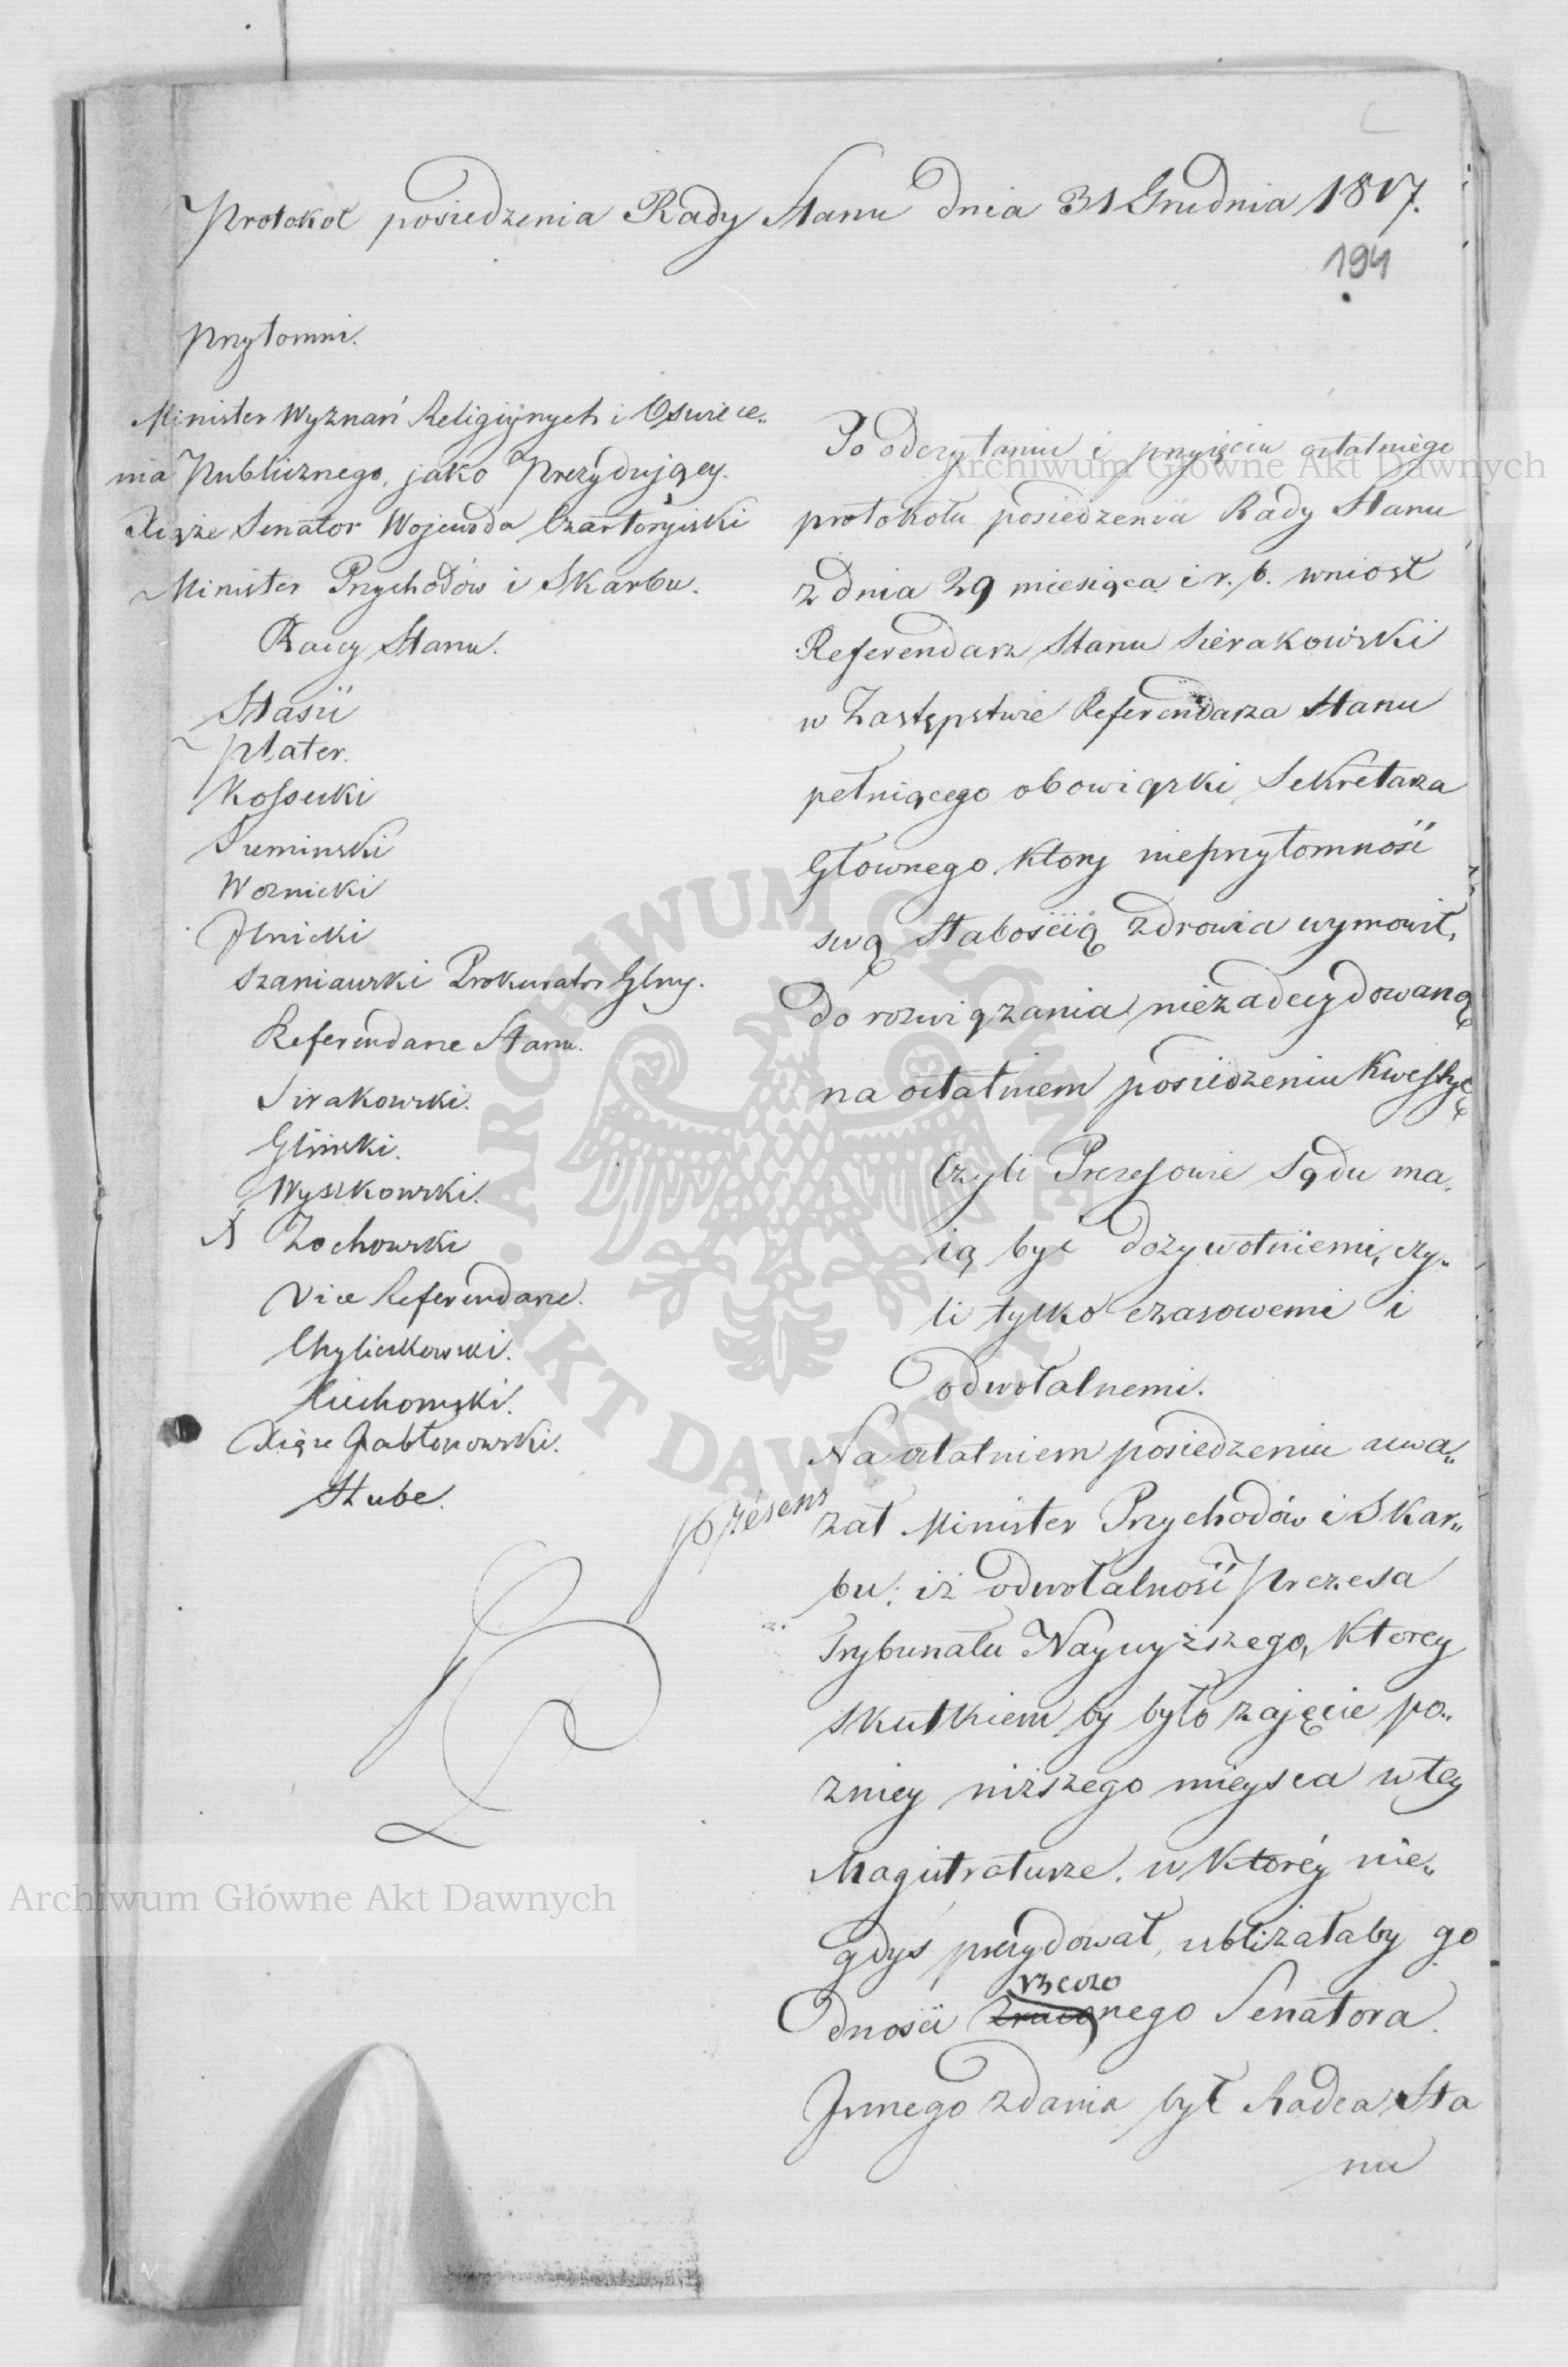 Protokoł posiedzenia Rady Stanu dnia 31 Grudnia 1817.
194
Przytomni.
Minister Wyznań Religijnych i Oswiece„
nia Publicznego, jako Prezydujący.
Xiąże Senator Wojewoda Czartoryiski
Minister Przychodów i Skarbu.
Radcy Stanu.
Stasic
Plater.
Kossecki
Suminski
Woznicki
Jlnicki
Szaniawski Prokurator Glny.
Referendarze Stanu.
Sirakowski.
Gliński.
Wyszkowski.
Zochowski
Vice Referendarze.
Chyliczkowski.
Xiąże Jabłonowski.
Hube.
présens
Po odczytaniu i przyięciu ostatniego
protokołu posiedzenia Rady Stanu
z dnia 29 miesiąca i r. b. wniosł
Referendarz Stanu Sierakowski
w Zastępstwie Referendarza Stanu
pełniącego obowiązki Sekretarza
Głownego ktory nieprzytomność
swą słabością zdrowia wymowił,
do rozwiązania niezadecydowaną
na ostatniem posiedzeniu kwestyę
Czyli Prezesowie Sądu ma„
ią być dożywotniemi, czy„
li tylko czasowemi i
odwołalnemi.
Na ostatniem posiedzeniu uwa„
żał Minister Przychodów i Skar„
bu: iż odwołalność Prezesa
Trybunału Naywyższego, ktorey
skutkiem by było zajęcie po„
zniey niższego mieysca w tey
Magistraturze, w ktoréy nie„
gdys prezydował, ubliżałaby go
dności rzeczo
nego Senatora.
Jnnego zdania był Radca Sta
nu
Archiwum Główne Akt Dawnych
ARCHIWUM GŁÓWNE AKT DAWNYCH
Archiwum Główne Akt Dawnych